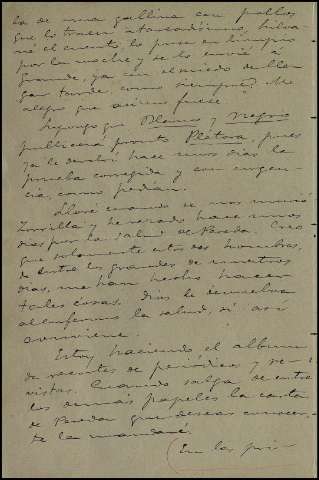 la de una gallina con pollos
que lo traen atareadísimo. Hilva-
né el cuento, lo puse en limpio
por la noche y se lo envié á
Grande, ya con el miedo de lle-
gar tarde, como siempre? Me
alegro que así no fuese.
Supongo que Blanco y Negro
publicará pronto Plétora, pues
ya le devolví hace unos días la
prueba corregida y con urgen-
cia, como pedían.
Lloré cuando se nos murió
Zorrilla y he rezado hace unos
días por la salud de Pereda. Creo
que solamente estos dos hombres,
de entre los grandes de nuestros
días, me han hecho hacer
tales cosas. Dios le devuelva
al enfermo la salud, si así
conviene.
Estoy haciendo el album
de recortes de periódicos y re-
vistas. Cuando salga de entre
los demás papeles la carta
de Pereda que deseas conocer,
te la mandaré.
(En las pri-